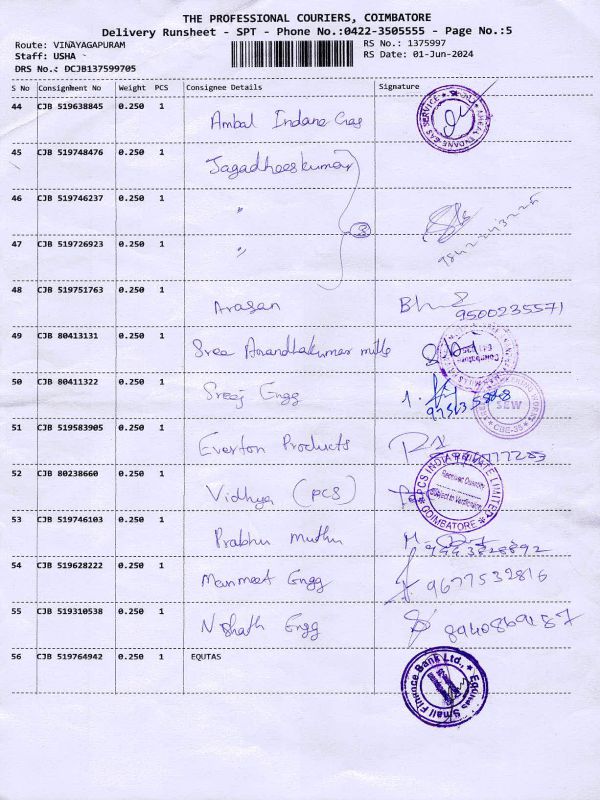 THE PROFESSIONAL COURIERS, COIMBATORE
Delivery Runsheet - SPT - Phone No.:0422-3505555 - Page No.:5
Route: VINAYAGAPURAM RS No.: 1375997
Staff: USHA RS Date: 01-Jun-2024
DRS No.: DCJB137599705
S No Consignment No Weight PCS Consignee Details Signature
44 CJB 519638845 0.250 1 Ambal Indane Gas
45 CJB 519748476 0.250 1 Jagadheeskumar
46 CJB 519746237 0.250 1 "
3
47 CJB 519726923 0.250 1 "
48 CJB 519751763 0.250 1 Arasan 9500235571
49 CJB 80413131 0.250 1 Sree Anandhakumar mills
50 CJB 80411322 0.250 1 Sreej Engg
SEW
CBE-35
51 CJB 519583905 0.250 1 Everton Products
52 CJB 80238660 0.250 1 Vidhya (PCS)
PCS INDIA PRIVATE LIMITED
Received Quantity
Subject to Verification
COIMBATORE
53 CJB 519746103 0.250 1 Prabhu muthu
54 CJB 519628222 0.250 1 Manmeet Engg 9677532816
55 CJB 519310538 0.250 1 Nishath Engg
56 CJB 519764942 0.250 1 EQUTAS
Equitas Small Finance Bank Ltd.,